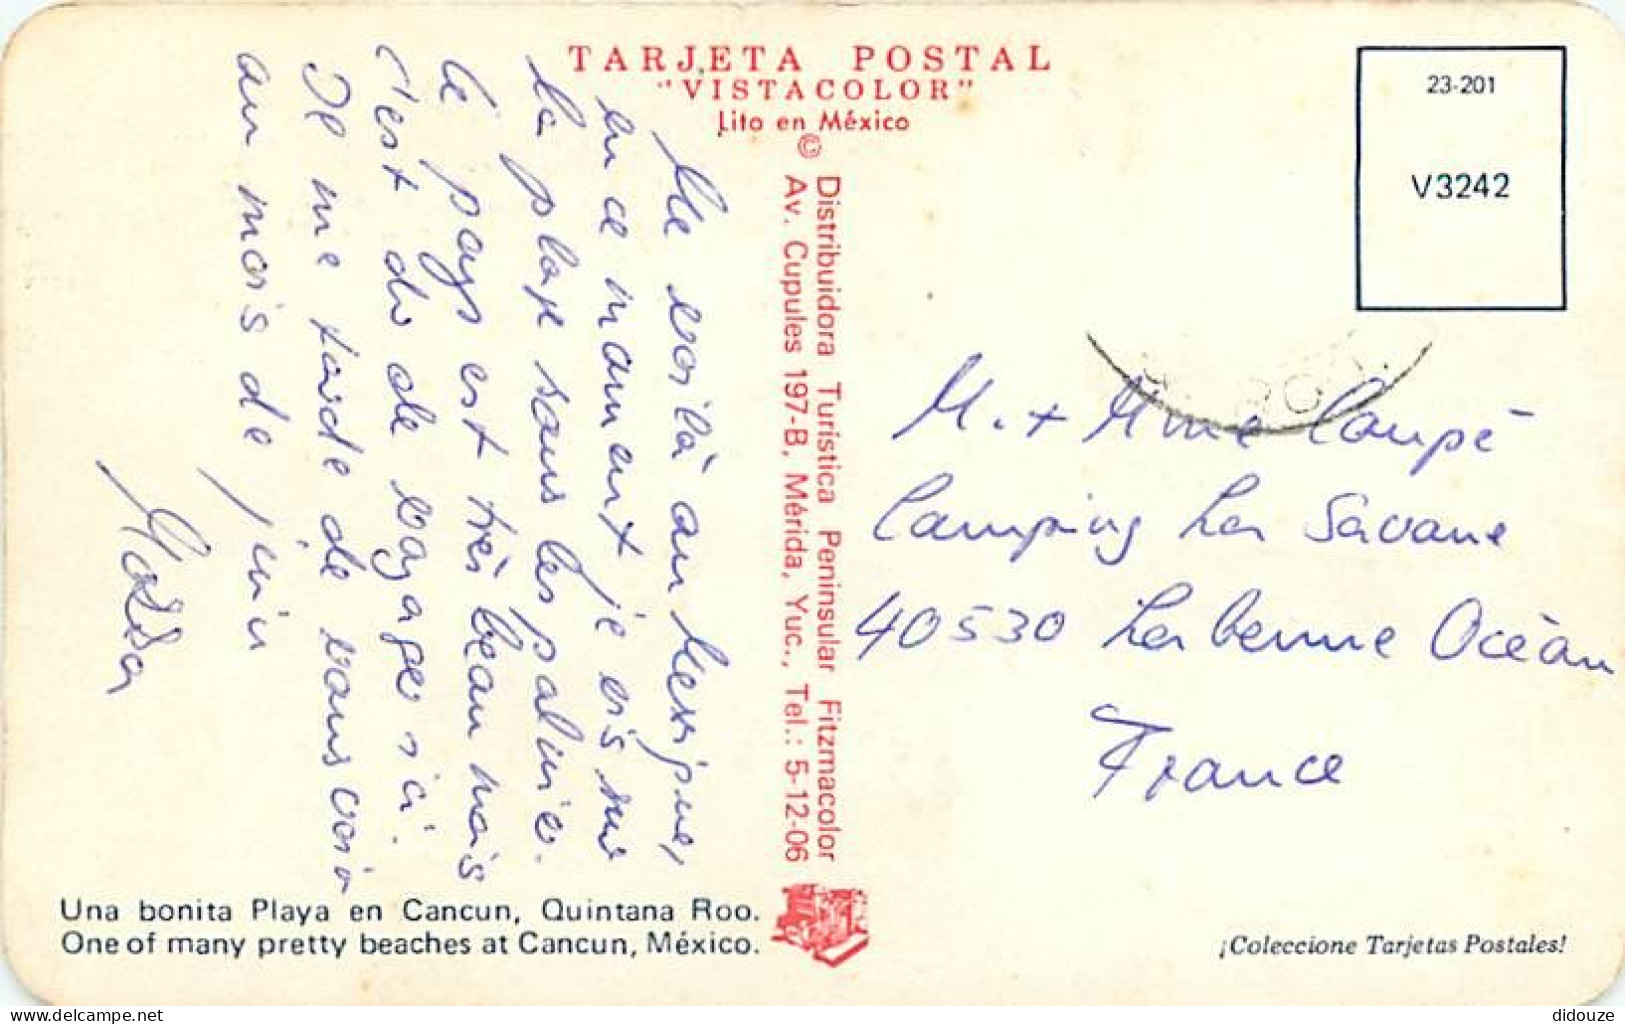 TARJETA POSTAL
"VISTACOLOR"
Lito en México
© Distribuidora Turística Peninsular Fitzmacolor
Av. Cupules 197-B, Mérida, Yuc., Tel.: 5-12-06
23-201
V3242
Me voilà au Mexique,
en ce moment je suis sur
la plage sous les palmiers.
le pays est très beau mais
c'est du de voyager ici.
Il me tarde de vous voir
au mois de juin
M. + Mme Coupé
Camping La Savane
40530 Labenne Océan
France
Una bonita Playa en Cancun, Quintana Roo.
One of many pretty beaches at Cancun, México.
¡Coleccione Tarjetas Postales!
didouze